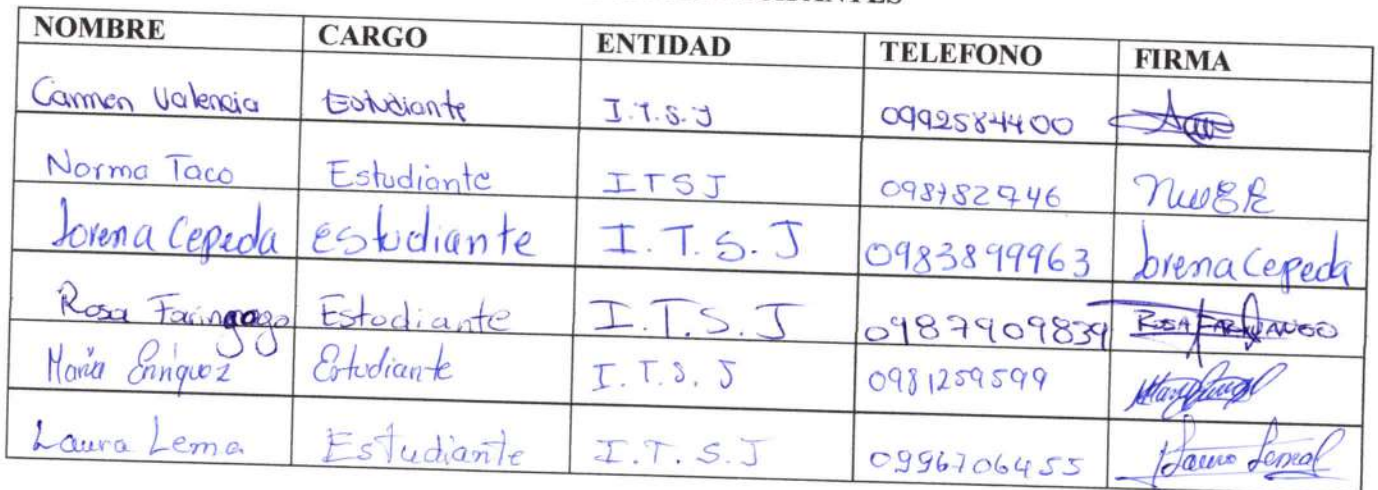 NOMBRE CARGO ENTIDAD TELEFONO FIRMA
Carmen Valencia Estudiante I.T.S.J 0992584400
Norma Taco Estudiante ITSJ 098782746
Lorena Cepeda estudiante I.T.S.J 0983899963 Lorena Cepeda
Rosa Estudiante I.T.S.J 0987909839 ROSA
María Enriquez Estudiante I.T.S.J 0981259599
Laura Lema Estudiante I.T.S.J 0996706455